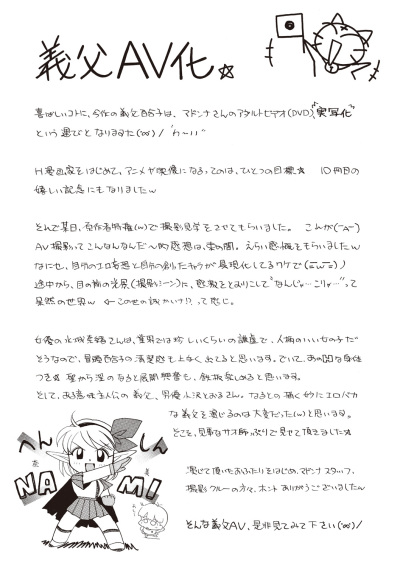 義父AV化☆
喜ばしいコトに、今作の義父百合子は、マドンナさんのアダルトビデオ(DVD)で"実写化"
という運びとなりました(^o^)/ ﾊﾟﾁﾊﾟﾁ
H漫画家をはじめて、アニメや映像になるってのは、ひとつの目標☆ 10冊目の
嬉しい記念にもなりましたw
それで某日、原作者特権(w)で撮影見学をさせてもらいました。 これが
AV撮影ってこんなんなんだ〜的感想は、束の間。えらい感慨をもらいましたw
なにせ、自分のエロ妄想と自分の創ったキャラが具現化してるワケで
途中から、目の前の光景(撮影シーン)に、感激をとおりこして"なんじゃ…こりゃ"って
呆然の世界w ←この世の詠かい!?って感じ。
女優の さんは、業界では珍しいくらいの謙虚で、人柄のいい女の子だ
そうなので、冒頭百合子の清楚感も上手く出てると思います。でいて、あの的な身体
つき☆ 聖から淫のなると展開 も、鉄板楽しめると思います。
そして、ある意味主人公の義父、男優小沢とおるさん。なるとの描く妙にエロバカ
な義父を演じるのは大変だった(w)と思いま す。
そこを、見事なサオ師っぷりで見せて頂きました☆
演じて頂いたおふたりをはじめ、マドンナスタッフ、
撮影クルーの方々、ホントありがうございましたw
そんな義父AV、是非見てみて下さい(^o^)/
へんしん
NAMI